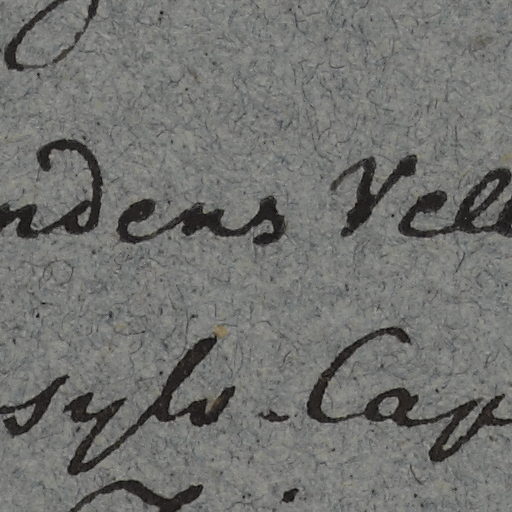 ndens Vell
sylv. Cap